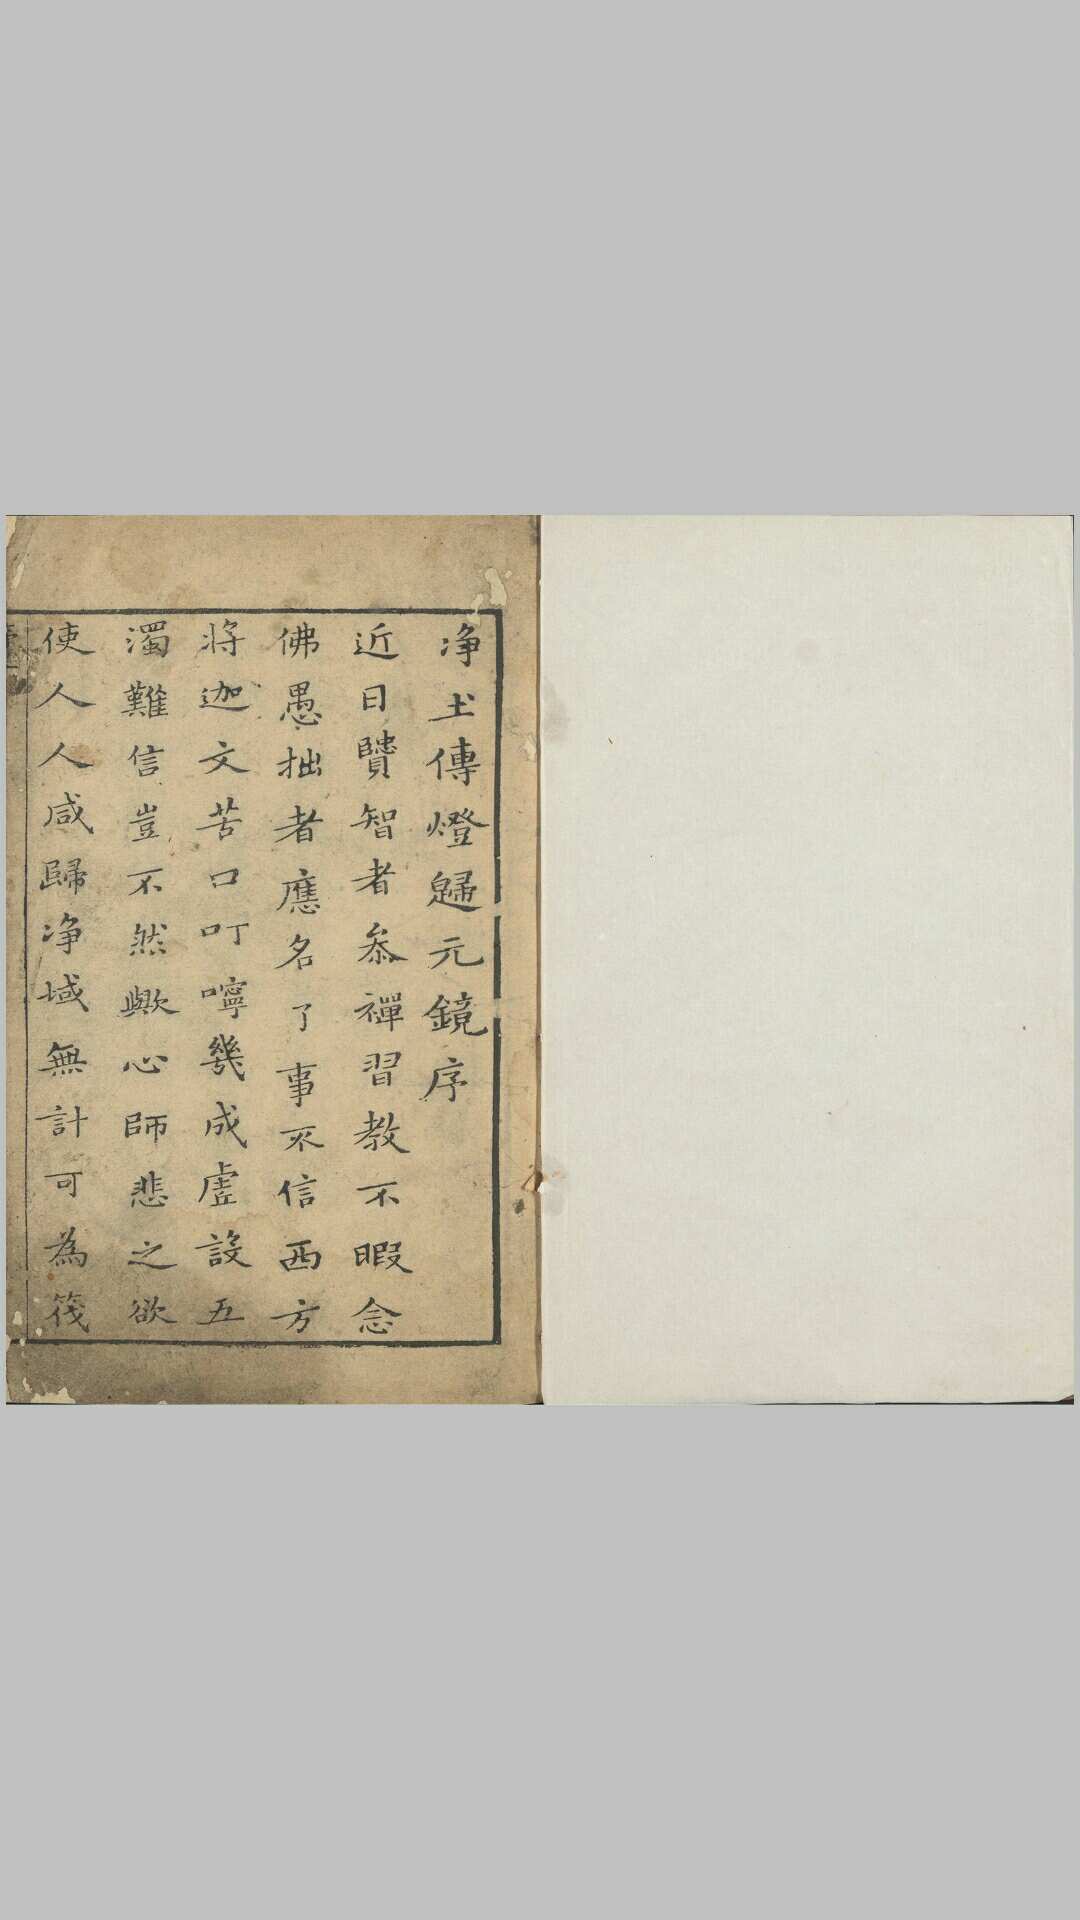 净土傳燈歸元鏡序
近日贒智者叅禪習教不暇念
佛愚拙者應名了事不信西方
將迦文苦口叮嚀幾成虛設五
濁難信豈不然歟心師悲之欲
使人人咸歸净域無計可為筏